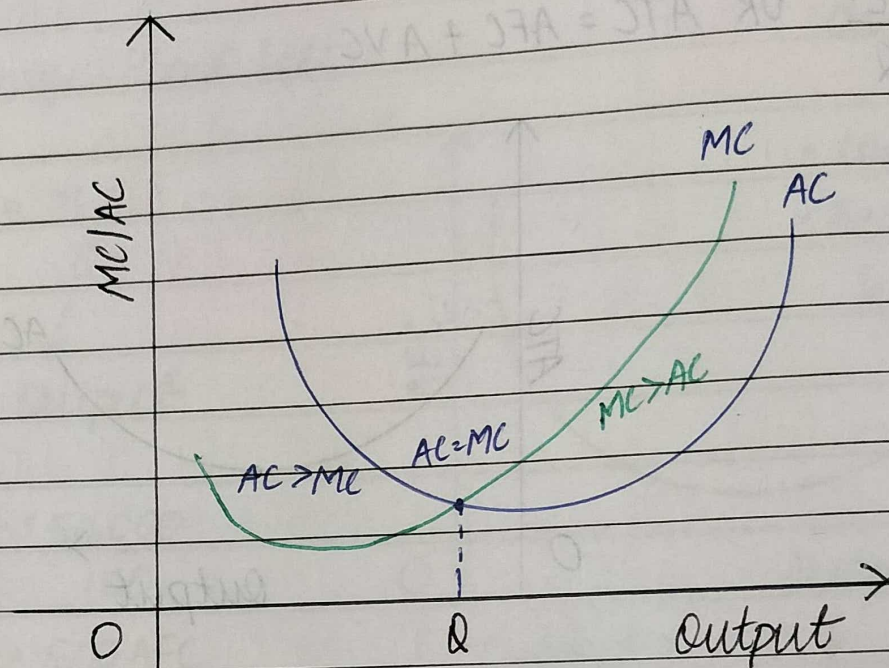 MC
AC
MC/AC
MC>AC
AC=MC
AC>MC
O
Q
Output